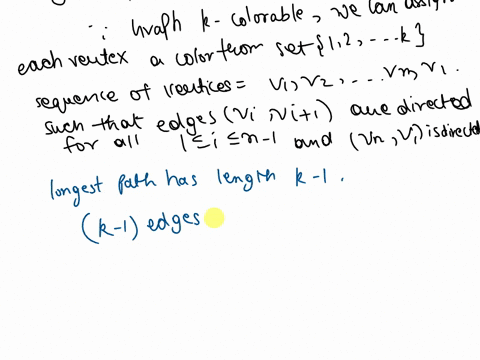 ∵ Graph k-colorable, we can assign
each vertex a color from set {1,2, ...k}
sequence of vertices = v1, v2, ... vn, v1.
such that edges (vi, vi+1) are directed
for all 1 ≤ i ≤ n-1 and (vn, vi) is directed
longest path has length k-1.
(k-1) edges